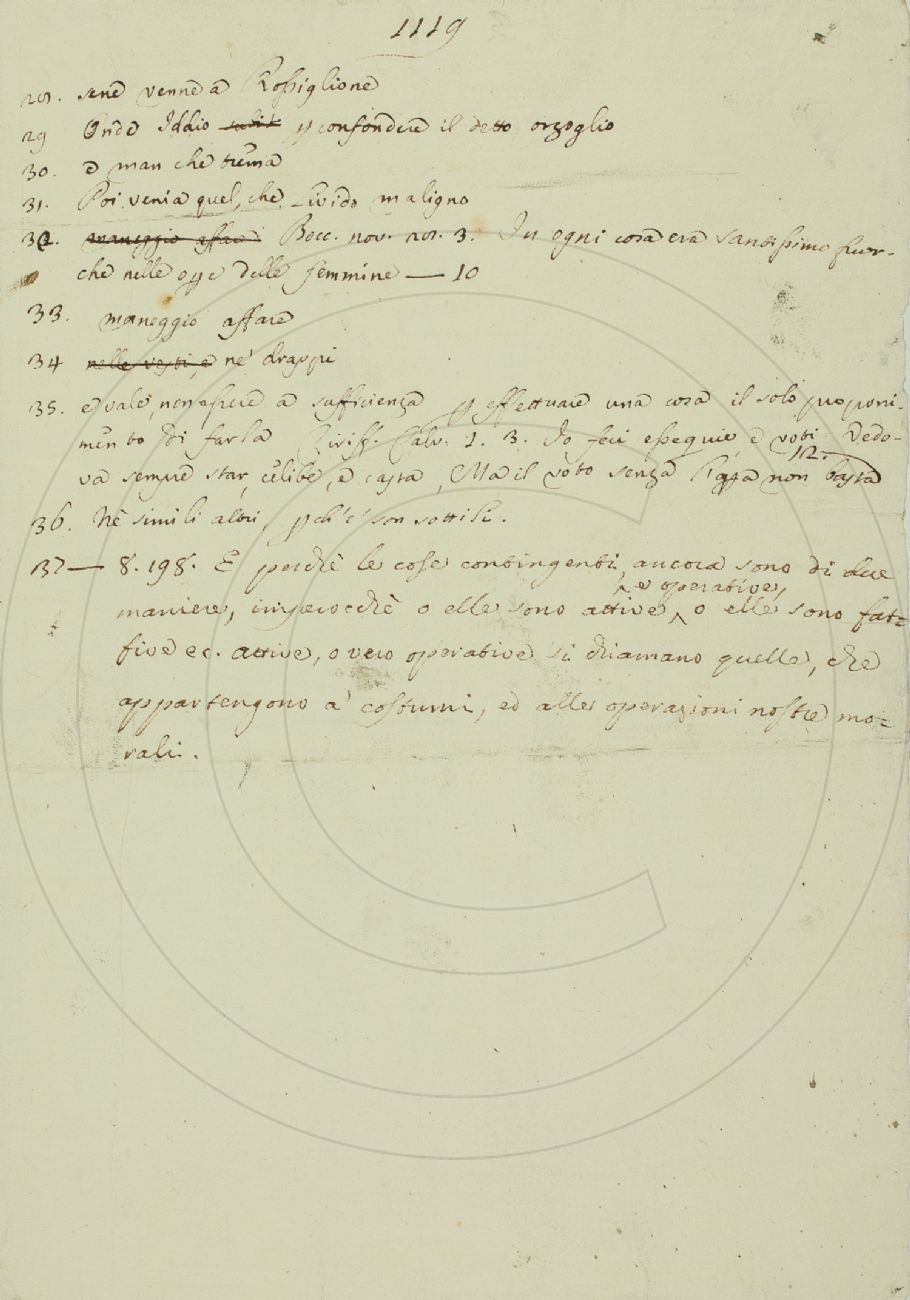 1119
28. sene venne a Rossiglione
29 Onde Iddio subit p confondere il detto orgoglio
30. e man che trema
31. Poi venia quel, che livido maligno
32. maneggio affare Bocc. nov. 28. 3. In ogni cosa era santissimo fuor-
che nelle ope delle femmine — 10
33. maneggio affare
34 nelle vesti, e ne' drappi
35. e vale, non essere a sufficienza p effettuare una cosa il solo proponi-
mento di farla Ciriff. Calv. 1. 3. Io feci essequie, e voti Vedo-
va sempre star, celibe, e casta, Ma il voto senza l'opra non basta
12.
36. Nè simili altri, pch' e' son sottili.
37 — 8. 198. E perchè le cose contingenti, ancora sono di due
maniere, imperocchè o elle sono attive, e operative, o elle sono fat-
tive ec. attive, o vero operative si chiamano quelle, che
appartengono a' costumi, ed alle operazioni nostre mo-
rali.